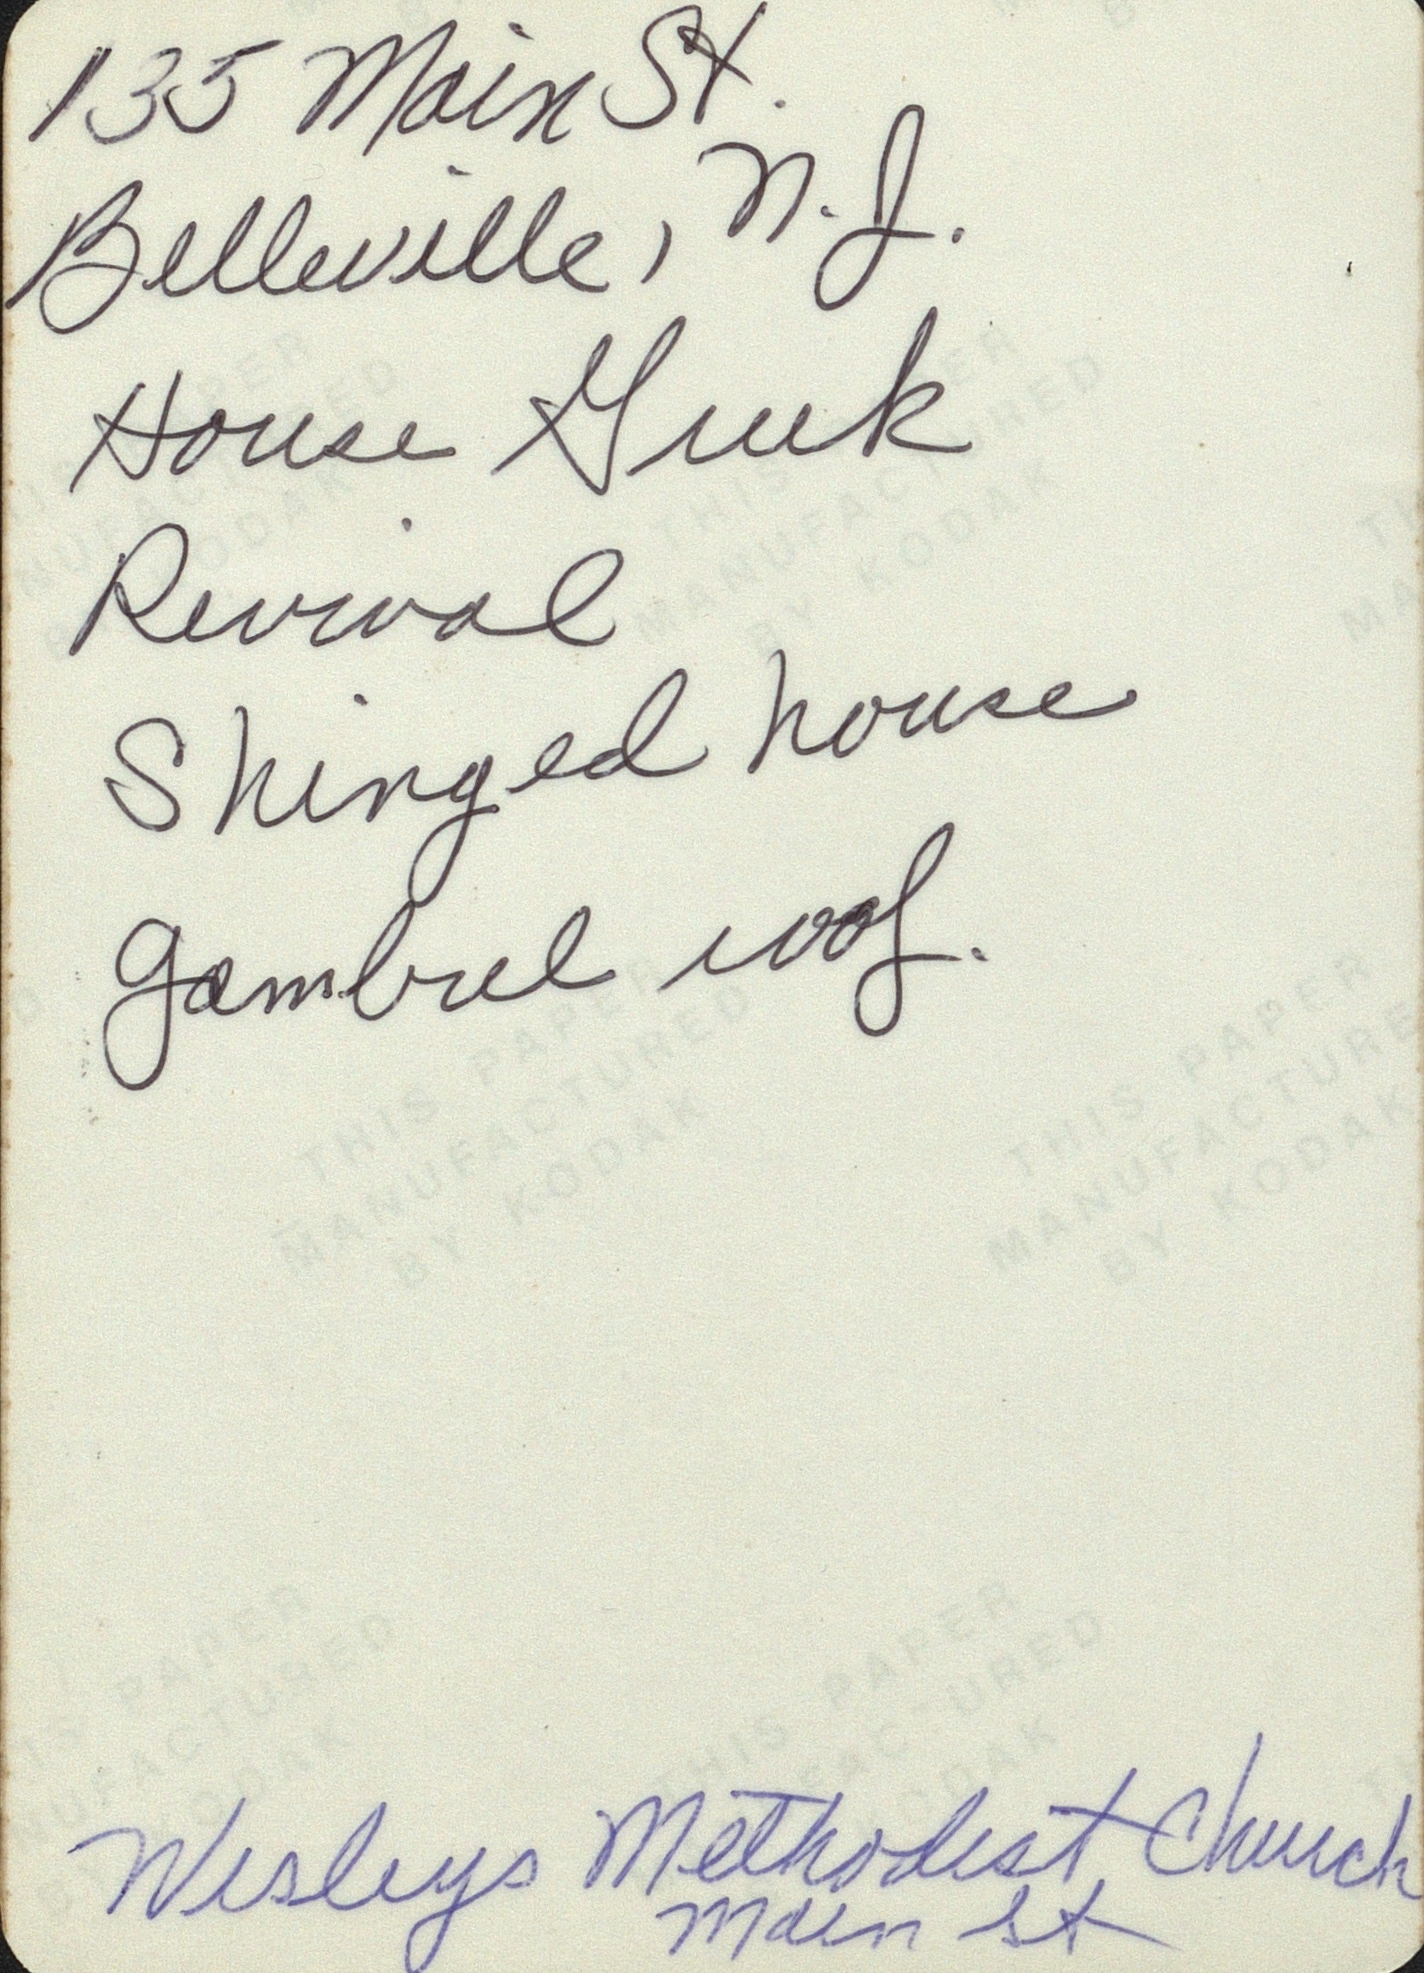 135 Main St.
Belleville, N.J.
House Greek
Revival
Shinged house
gambrel roof.
Wesleys Methodist Church
Main St
THIS PAPER
MANUFACTURED
BY KODAK